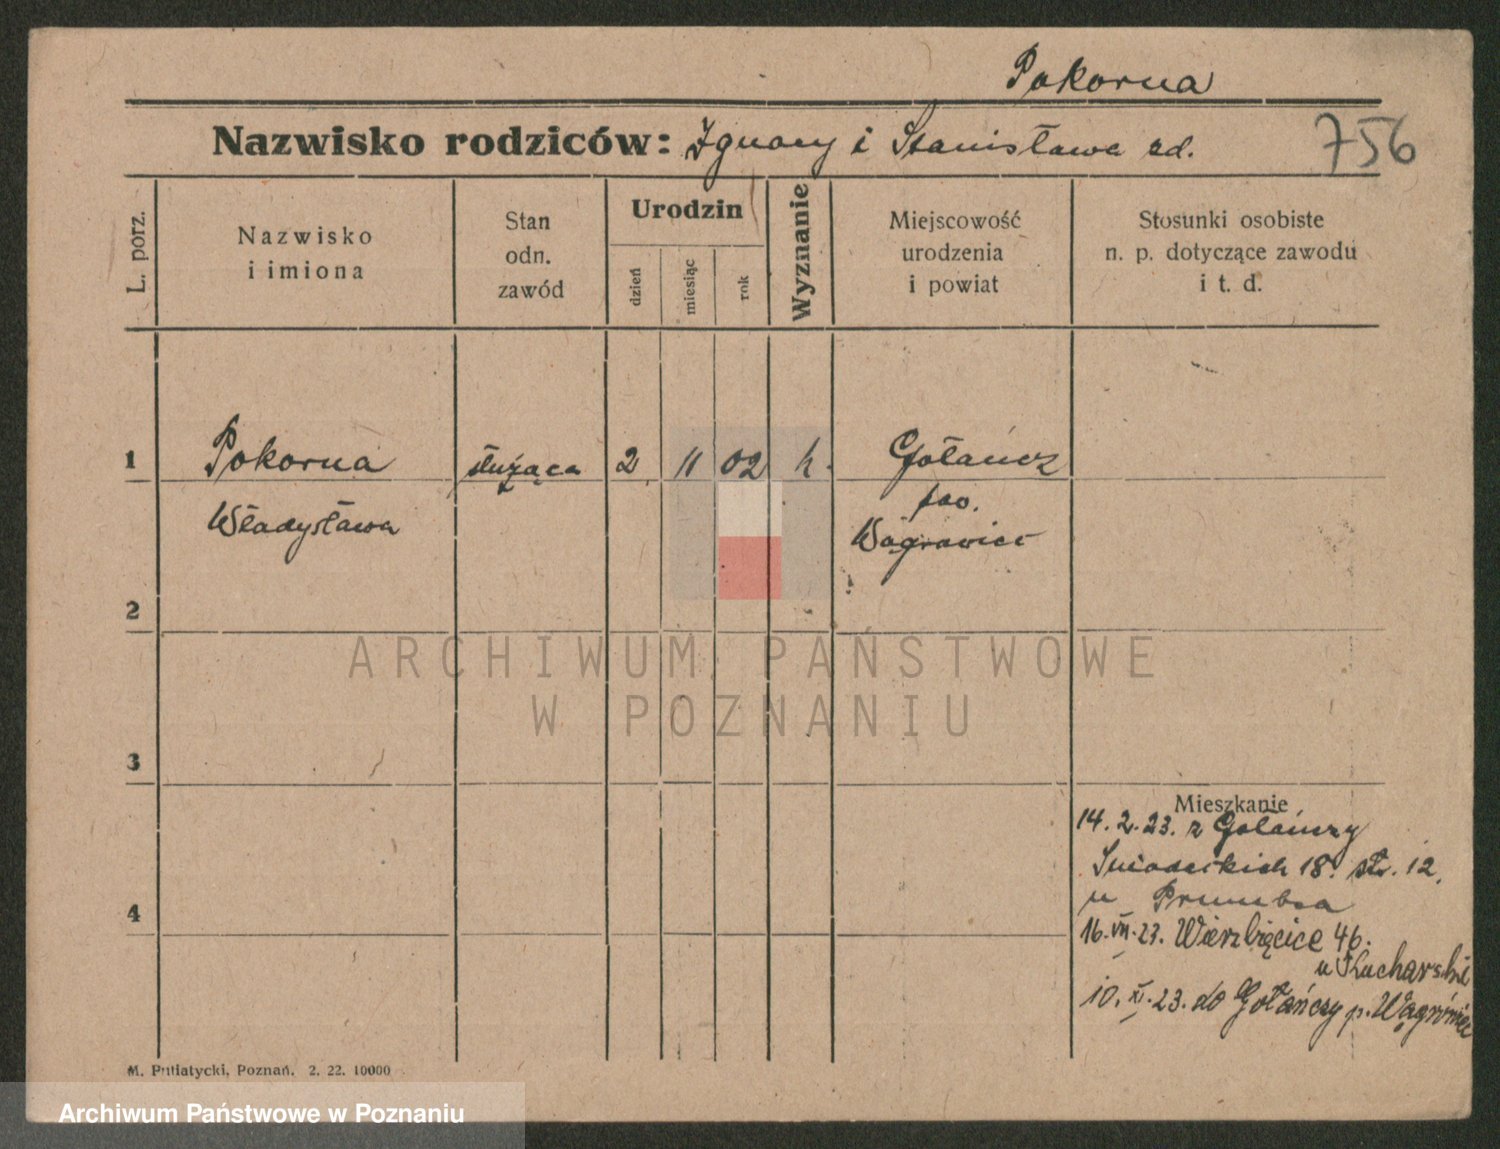 Pokorna
Nazwisko rodziców: Ignacy i Stanisława zd.
756
L. porz.
Nazwisko
i imiona
Stan
odn.
zawód
Urodzin
dzień
miesiąc
rok
Wyznanie
Miejscowość
urodzenia
i powiat
Stosunki osobiste
n. p. dotyczące zawodu
i t. d.
1
Pokorna
służąca
2
11
02
k.
Gołańcz
Władysława
pow.
Wągrowiec
2
ARCHIWUM PAŃSTWOWE
W POZNANIU
3
Mieszkanie
14. 2. 23. z Gołańczy
Śniadeckich 18. str. 12.
4
u
16. VII. 23. Wierzbięcice 46.
u Kucharski
10. X. 23. do Gołańczy p. Wągrówiec
M. Putiatycki, Poznań. 2. 22. 10000
Archiwum Państwowe w Poznaniu